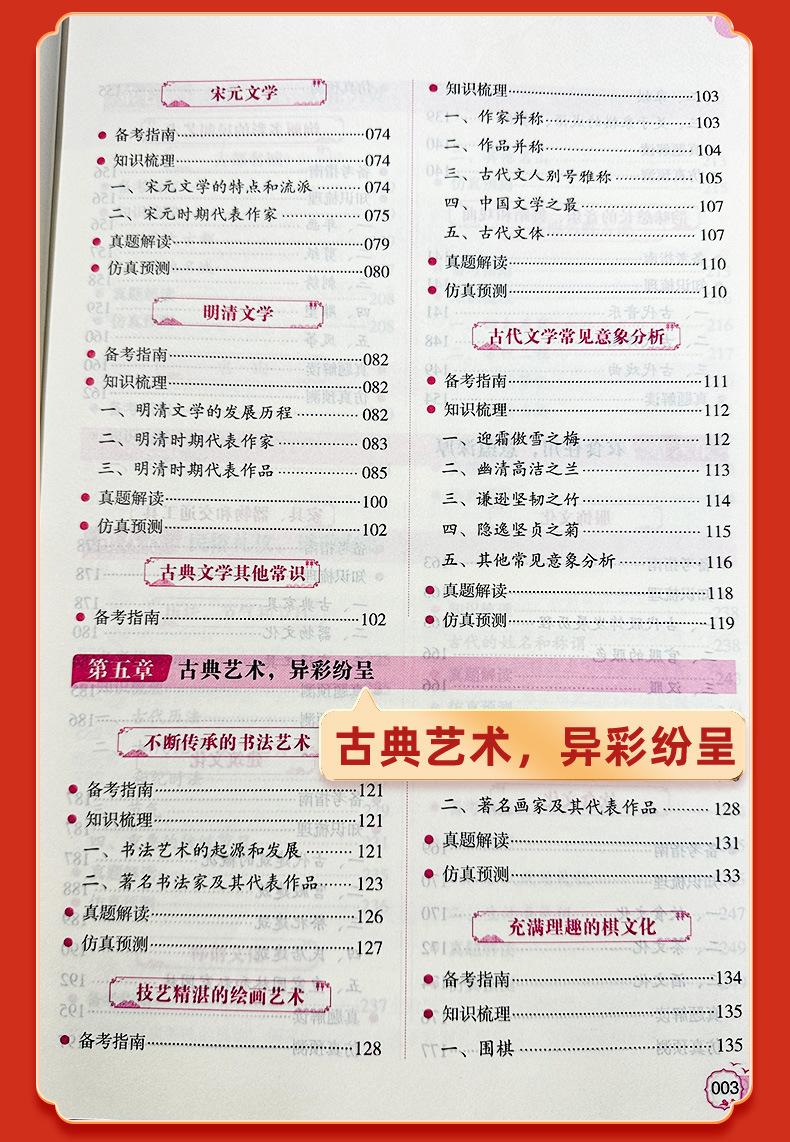 宋元文学
备考指南 074
知识梳理 074
一、宋元文学的特点和流派 074
二、宋元时期代表作家 075
真题解读 079
仿真预测 080
明清文学
备考指南 082
知识梳理 082
一、明清文学的发展历程 082
二、明清时期代表作家 083
三、明清时期代表作品 085
真题解读 100
仿真预测 102
古典文学其他常识
备考指南 102
知识梳理 103
一、作家并称 103
二、作品并称 104
三、古代文人别号雅称 105
四、中国文学之最 107
五、古代文体 107
真题解读 110
仿真预测 110
古代文学常见意象分析
备考指南 111
知识梳理 112
一、迎霜傲雪之梅 112
二、幽清高洁之兰 113
三、谦逊坚韧之竹 114
四、隐逸坚贞之菊 115
五、其他常见意象分析 116
真题解读 118
仿真预测 119
第五章 古典艺术，异彩纷呈
古典艺术，异彩纷呈
不断传承的书法艺术
备考指南 121
知识梳理 121
一、书法艺术的起源和发展 121
二、著名书法家及其代表作品 123
真题解读 126
仿真预测 127
技艺精湛的绘画艺术
备考指南 128
二、著名画家及其代表作品 128
真题解读 131
仿真预测 133
充满理趣的棋文化
备考指南 134
知识梳理 135
一、围棋 135
003